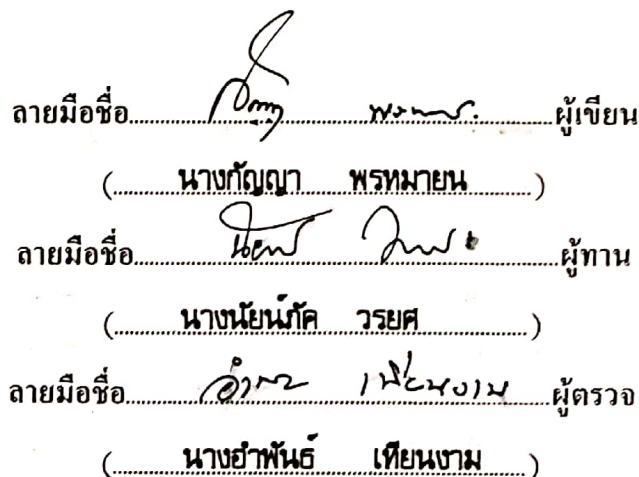 ลายมือชื่อ............................................ผู้เขียน
(............นางกัญญา......พรหมายน............)
ลายมือชื่อ............................................ผู้ทาน
(............นางนัยน์ภัค......วรยศ............)
ลายมือชื่อ............อำพัน......เทียนงาม............ผู้ตรวจ
(............นางอำพันธ์......เทียนงาม............)